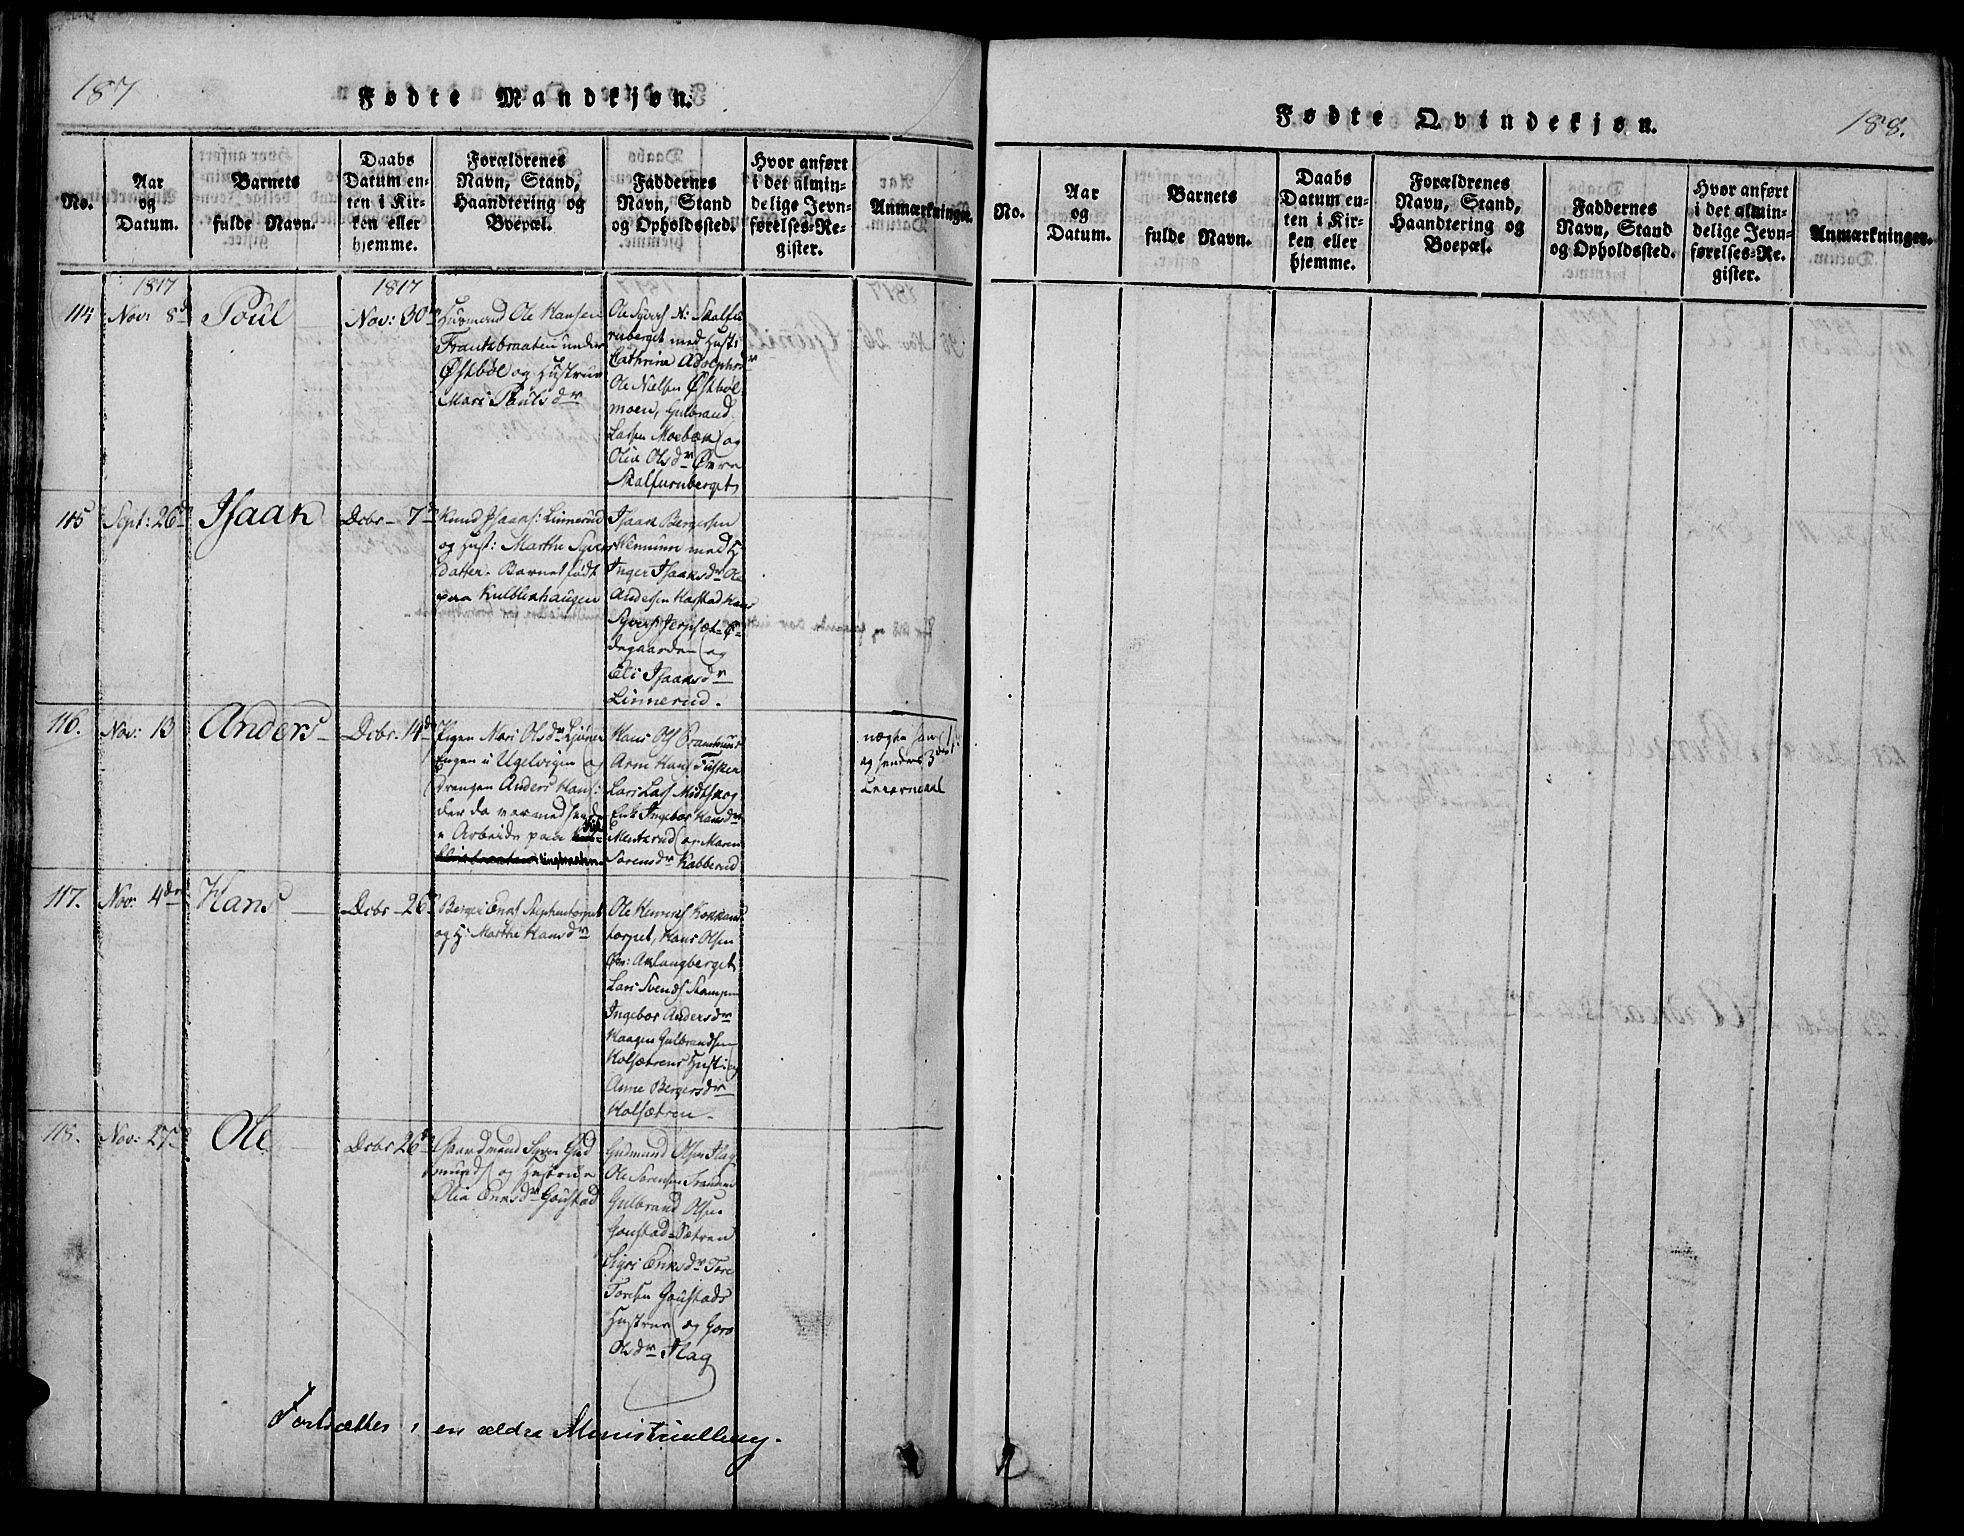 187
Fødte Mandkjøn.
No.
Aar
og
Datum.
Barnets
fulde Navn.
Daabs
Datum en-
ten i Kir-
ken eller
hjemme.
Forældrenes
Navn, Stand,
Haandtering og
Boepæl.
Faddernes
Navn, Stand
og Opholdssted.
Hvor anført
i det almin-
delige Jevn-
førelses-Re-
gister.
Anmærkninger.
1817
1817
114
Nov: 8d
Poul
Nov: 30
Huusmand Ole Hansen
Frantzbraaten under
Østbøl og Hustrue
Mari Poulsdr
Ole Syvers N: Skalfu
ruberget med Hust:
Cathrine Adolphsdr
Ole Nielsen Østbøl
moen, Gulbrand
Larsen Moebæk og
Olia Olsdr Øvre
Skalfuruberget
115
Sept: 26d
Isaak
Dcbr - 7d
Knud Isaaks: Linnerud
og Hust: Marthe Syvers
datter. Barnet født
paa Kulblikhaugen
Isaak Bergersen
Wennum med H:
Inger Isaaksdr Ole
Andersen Harstad Hans
Syvers Jerpsæt-Ø-
degaarden og
Eli Isaaksdr
Linnerud.
116.
Nov: 13
Anders
Dcbr. 14d
Pigen Mari Olsdr
Engen i Ugelvigen og
drengen Anders Hans:
der da var med hende
i Arbeide paa
Hans Ols
Arne Hans Tusker
Lars Lars Midtskog
Erik Ingebor Hansdr
og Maren
Sørensdr Kabberud
nægte
og hendes 3de
Leiermaal
117.
Nov: 4de
Hans
Dcbr - 26
Berger Engs Stephentorpet
og H: Marthe Hansdr
Ole Hemmes Kokkens
torpet, Hans Olsen
Øv: Aklangberget
Lars Svends Stampen
Ingebor Andersdr
Haagen Gulbrandsen
Kolsætrens Hust: og
Anne Bergersdr
Kolsætren.
118.
Nov: 27d
Ole
Dcbr 26d
Gaardmand Syver Gud
munds og Hustrue
Olia Eriksdr Goustad
Gudmund Olsen Flag
Ole Sørensen Tranden
Gulbrand Olsen
Goustad-Sætren
Sigri Eriksdr Tore
Toresen Goustads
Hustrue og Goro
Olsdr Flag
Fortsættes i en ældre Ministerialbog.
188.
Fødte Qvindekjøn.
No.
Aar
og
Datum.
Barnets
fulde Navn.
Daabs
Datum en-
ten i Kir-
ken eller
hjemme.
Forældrenes
Navn, Stand,
Haandtering og
Boepæl.
Faddernes
Navn, Stand
og Opholdssted.
Hvor anført
i det almin-
delige Jevn-
førelses-Re-
gister.
Anmærkninger.